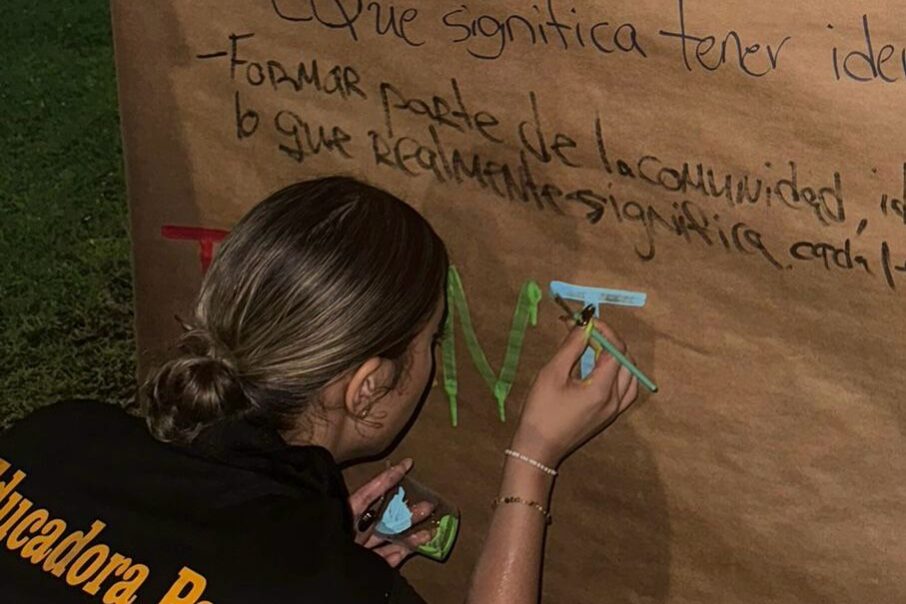 ¿Que significa tener iden
-FORMAR parte de la comunidad, id
lo que realmente significa cada
T M T
Educadora P